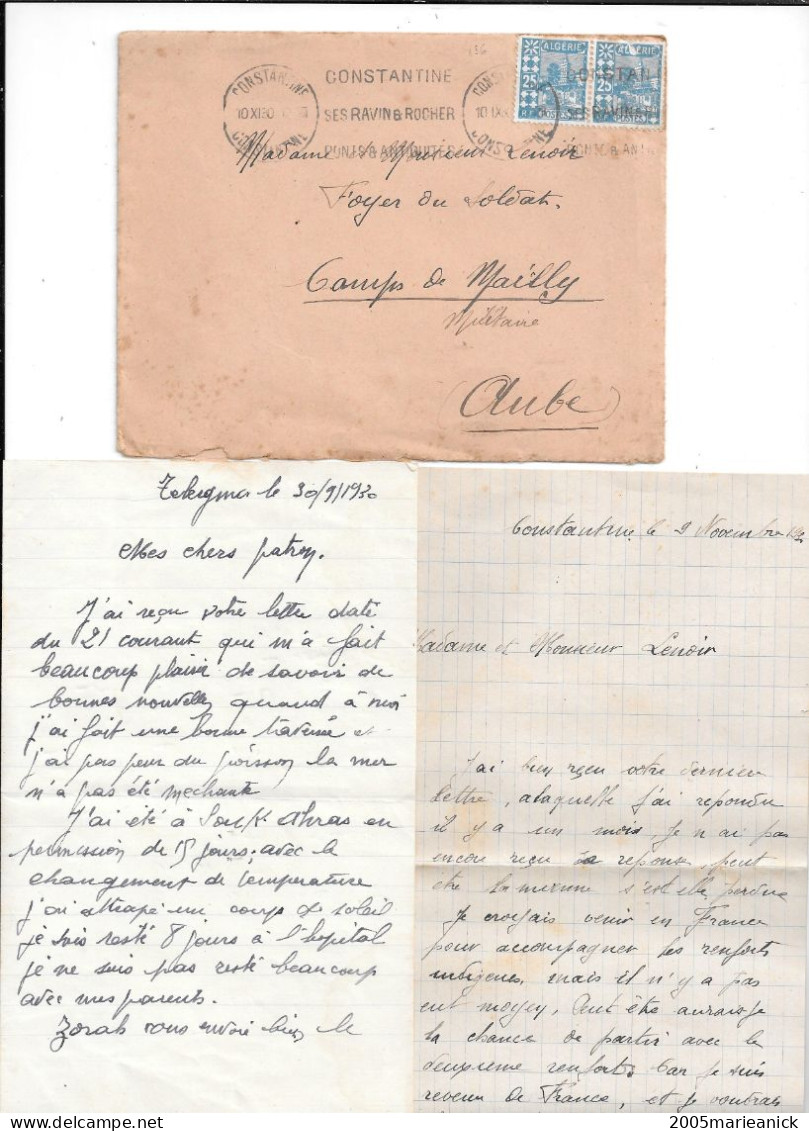 136
ALGERIE
ALGERIE
25
25
R.F. POSTES
CONSTANTINE
CONSTANTINE
SES RAVIN & ROCHER
PONTS & ANTIQUITES
CONSTANTINE
10 XI 30
CONSTANTINE
CONSTAN
SES RAVIN & R
PONTS & ANTI
Madame & Monsieur Lenoir
Foyer du Soldat.
Camps de Maïlly
Militaire
(Aube)
le 30/9/1930
Mes chers patron.
J'ai reçu votre lettre daté
du 21 courant qui m'a fait
beaucoup plaisir de savoir de
bonnes nouvelles quand à moi
j'ai fait une bonne traversé et
j'ai pas peur du poisson la mer
n'a pas été mechante
J'ai été à Souk. Ahras en
permission de 15 jours. avec le
changement de température
j'ai attrapé un coups de soleil
je suis resté 8 jours à l'hopital
je ne suis pas resté beaucoup
avec mes parents.
Zorah vous envoie bien le
Constantine le 9 Novembre 1930
Madame et Monsieur Lenoir
J'ai bien reçu votre dernier
lettre, alaquelle j'ai repondu
il y a un mois, Je n'ai pas
encore reçu la reponse, peut
être la mienne s'est elle perdue
Je croyais venir en France
pour accompagner les renforts
indigènes, mais il n'y a pas
eut moyen, Peut être aurais-je
la chance de partir avec le
deuxieme renforts. Car je suis
revenu de France, et je voudrais
2005marieanick